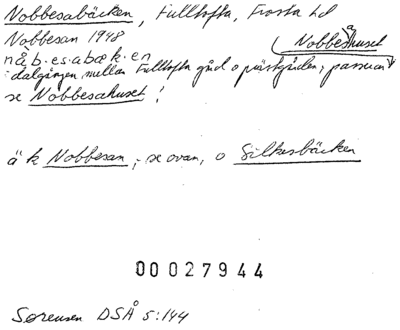 Nobbesabäcken, Fulltofta, Frosta hd
Nobbesan 1948
Nobbesåhuset
nåb·es·abæk·en
i dalgången mellan Fulltofta gård o prästgården, passerar
se Nobbesahuset!
ä k Nobbesan, se ovan, o Silkesbäcken
00027944
Sørensen DSÅ 5:144